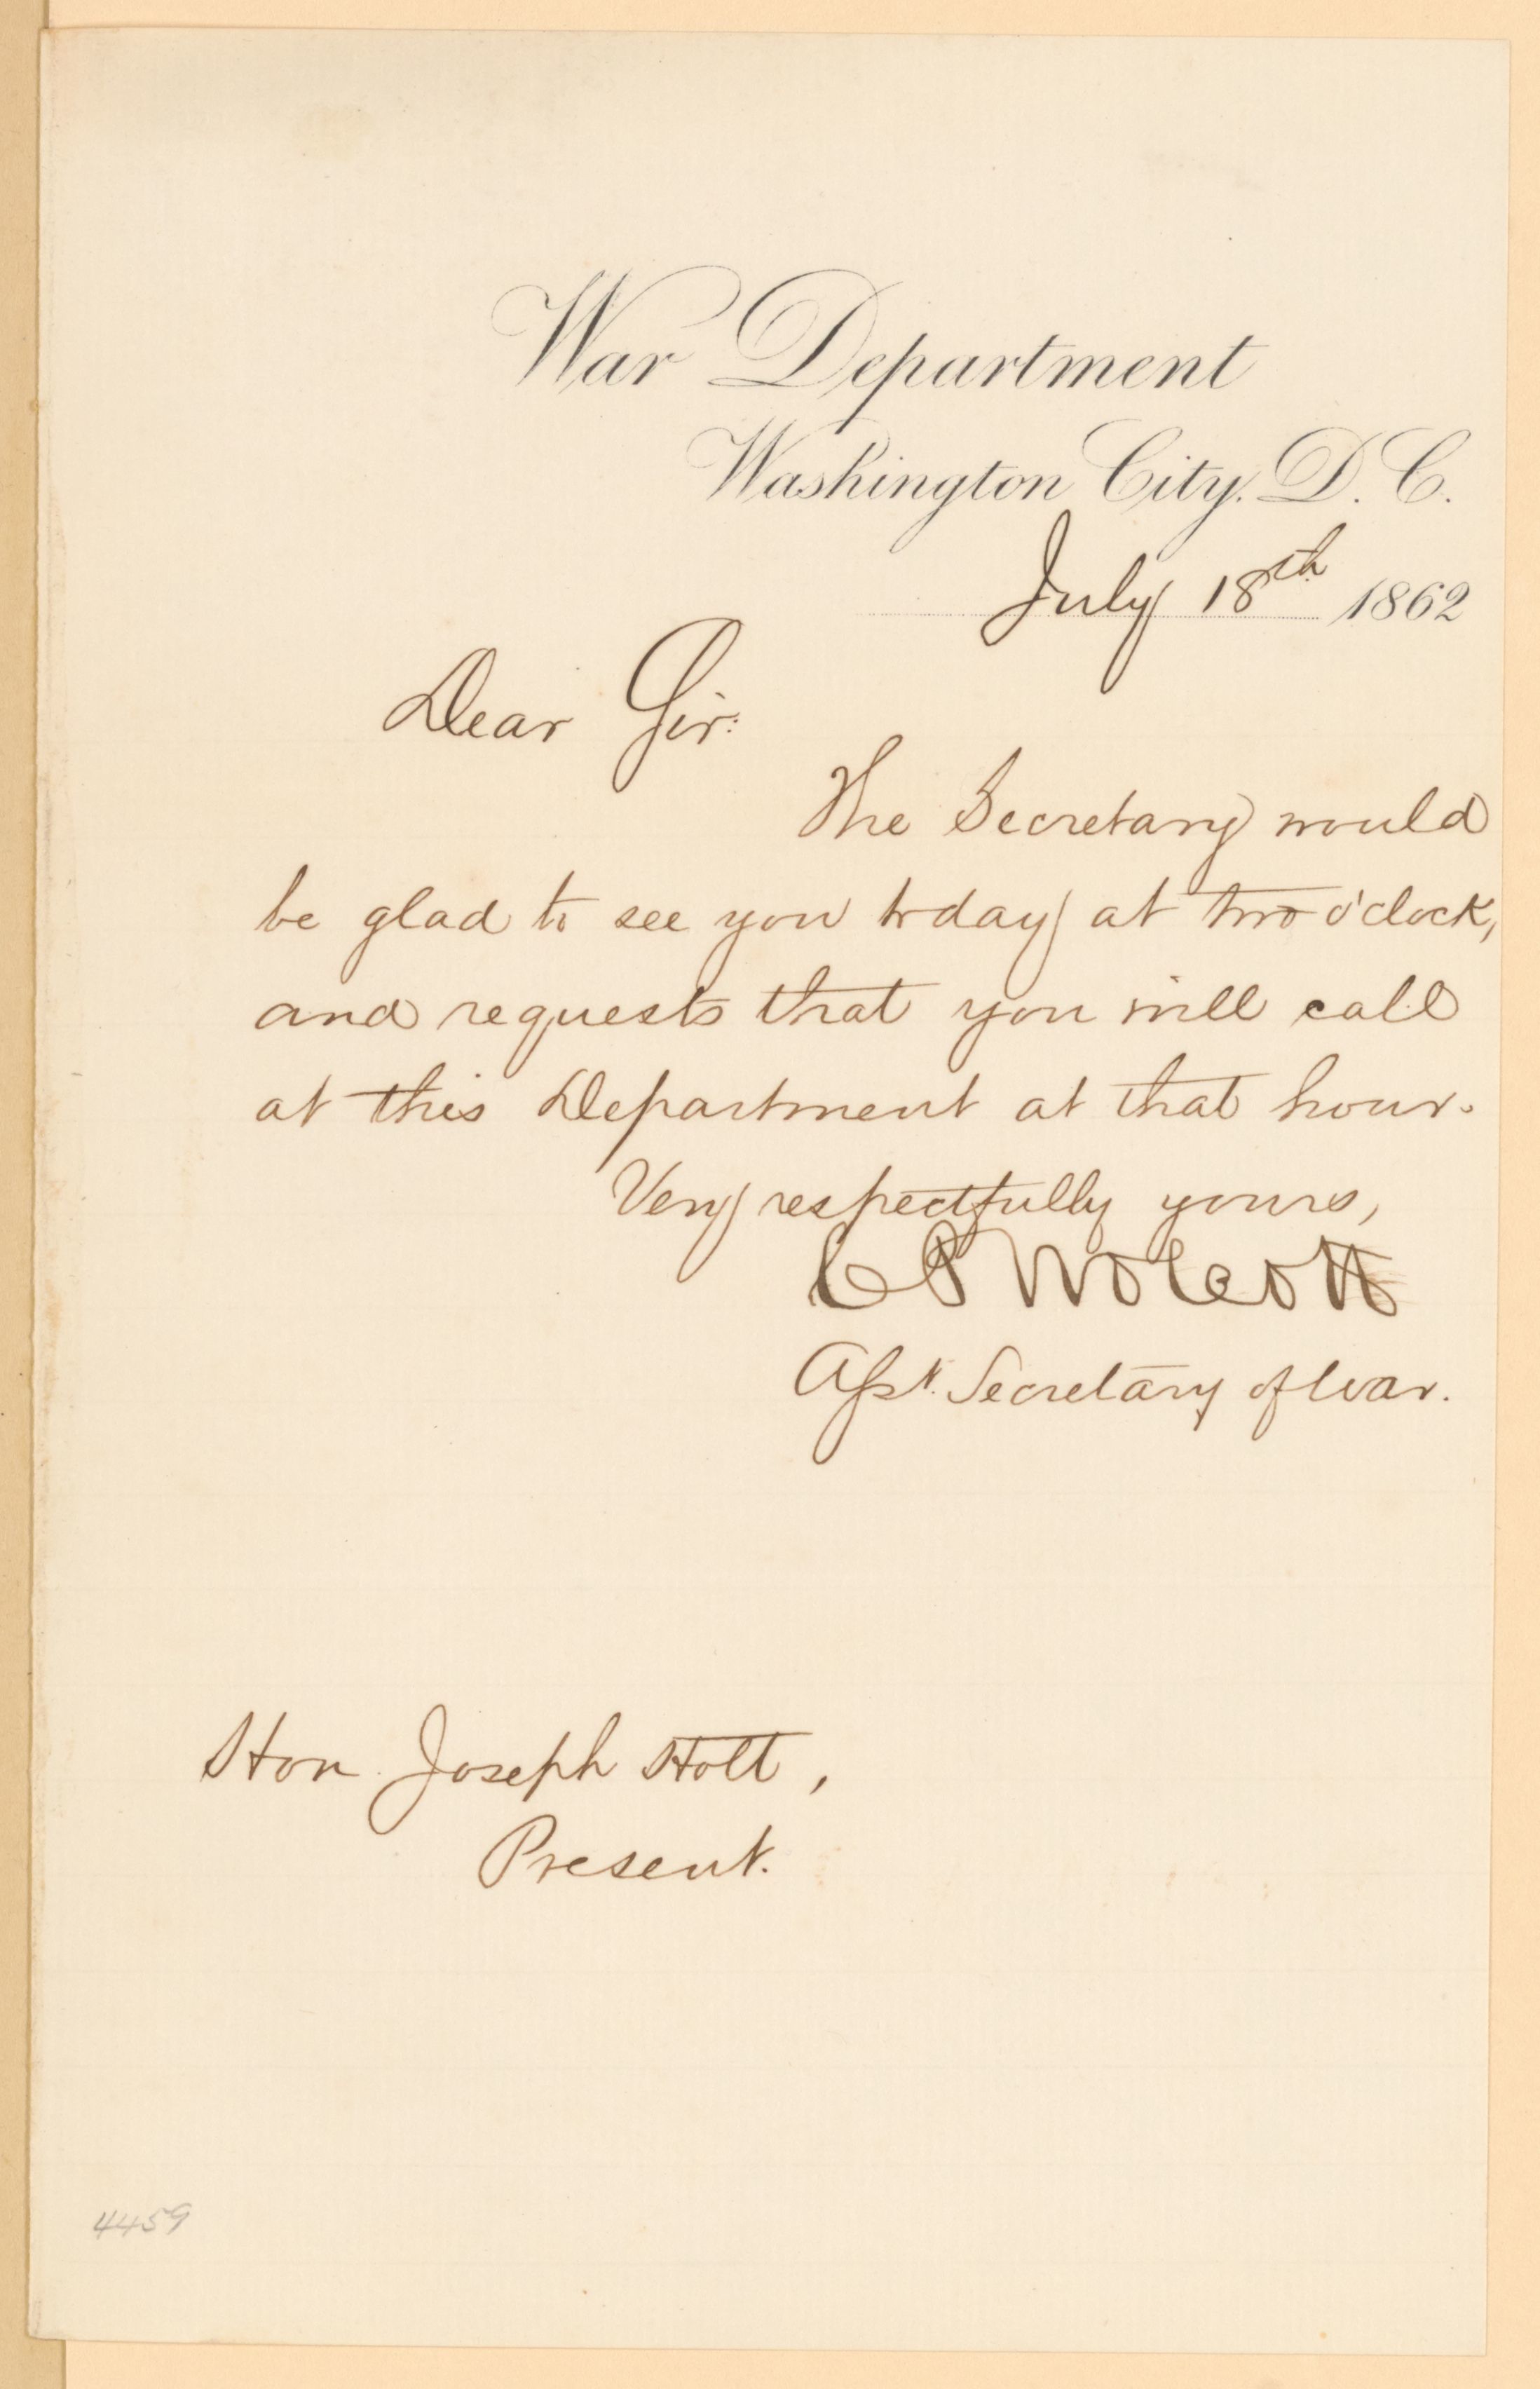 War Department
Washington City, D. C.
July 18th 1862
Dear Sir:
The Secretary would
be glad to see you today at two o'clock,
and requests that you will call
at this Department at that hour.
Very respectfully yours,
C P Wolcott
Asst. Secretary of War.
Hon. Joseph Holt,
Present.
4459